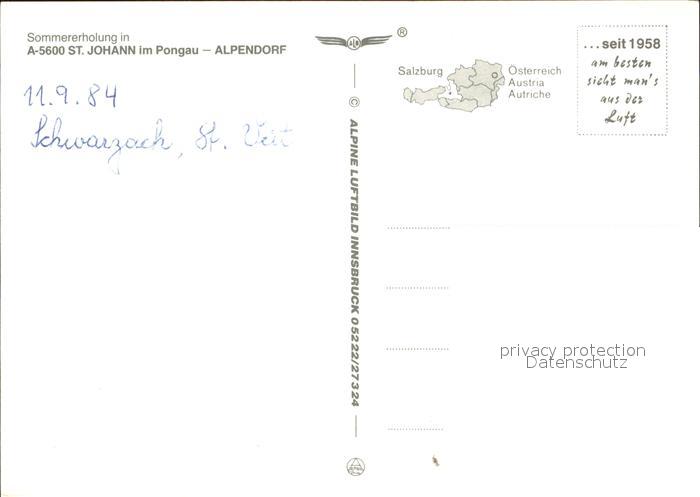 Sommererholung in
A-5600 ST. JOHANN im Pongau — ALPENDORF
11.9.84
Schwarzach, St. Veit
®
© ALPINE LUFTBILD INNSBRUCK 05222/27324
Salzburg
Österreich
Austria
Autriche
...seit 1958
am besten
sieht man's
aus der
Luft
privacy protection
Datenschutz